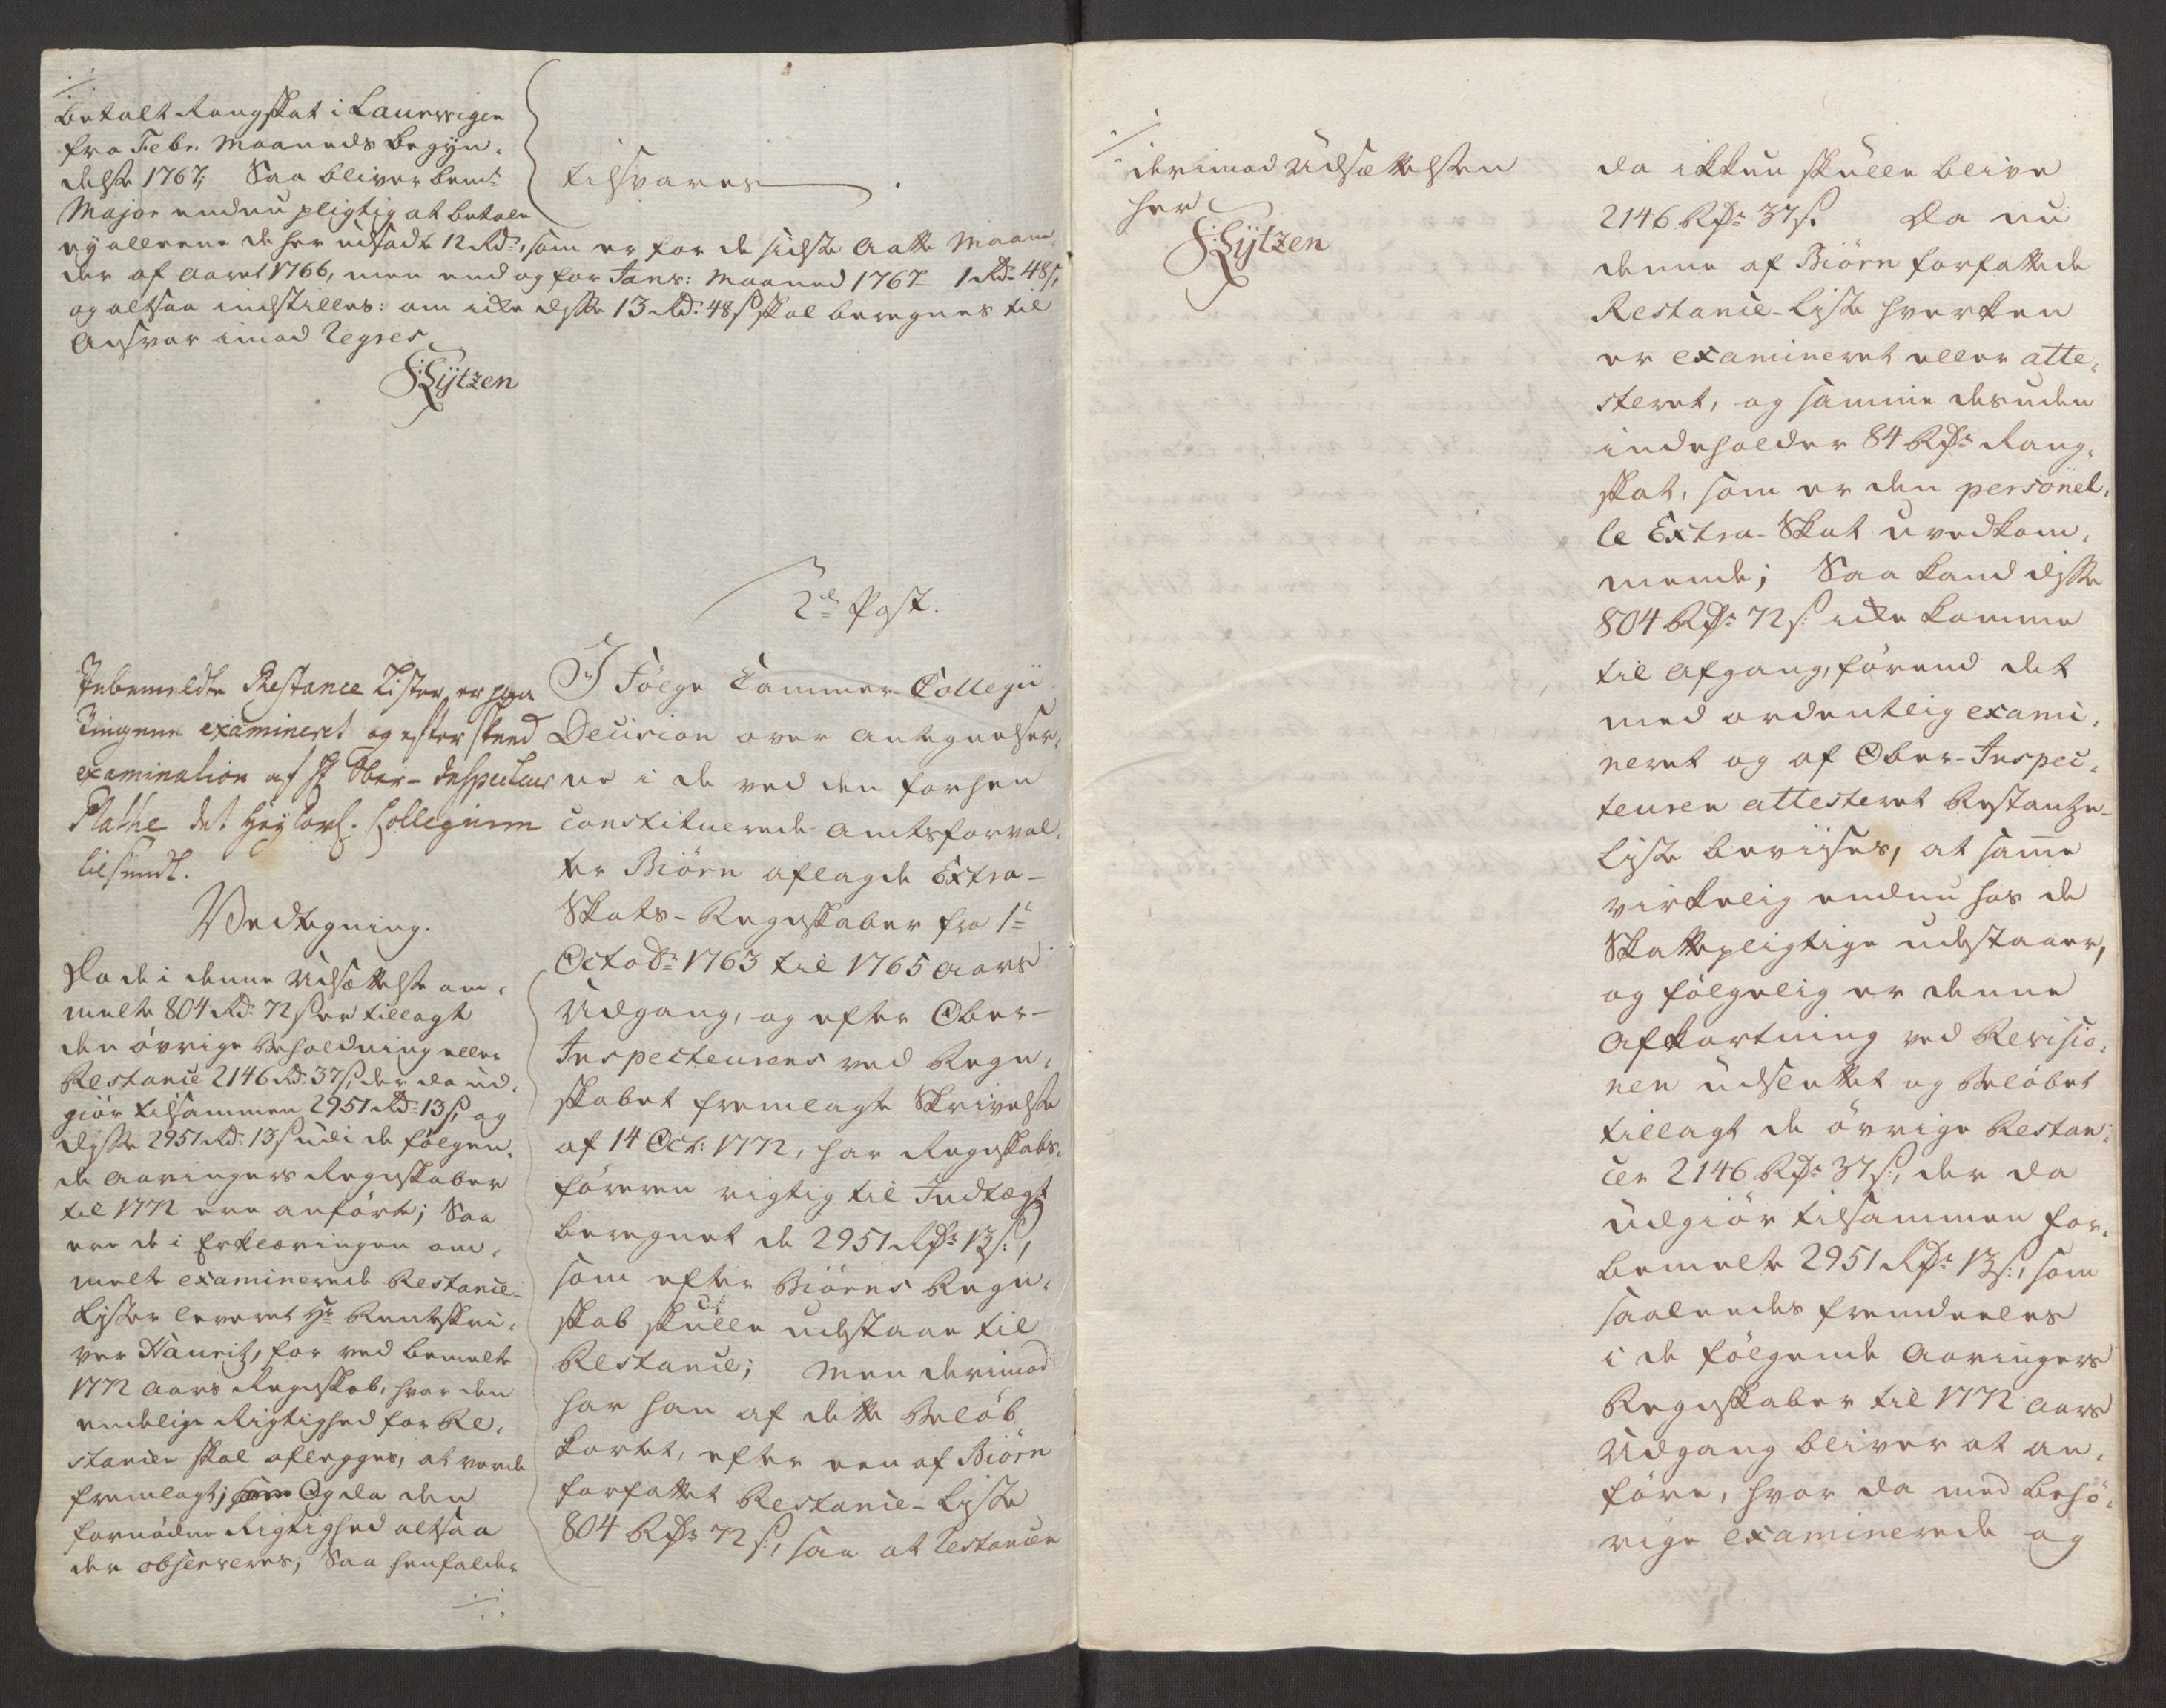 betalt Rangskat i Laurwigen
fra Febr. Maaneds begyn-
delse 1767; Saa bliver bemte
Major endnu pligtig at betale
ey alleene de her udsadte 12 Rd:, som er for de sidste Aatte Maane-
der af Aaret 1766, men end og for Janr: Maaned 1767 1 Rd: 48 s,
og altsaa indstilles: om icke disse 13 Rd: 48 s skal beregnes til
Ansvar imod Regres.
Lytzen
tilsvares
2de Post.
Inbemeldte Restance Lister er paa
Tingene examineret og efter skeed
examination af Hr Ober-Inspecteur
Plathe det Høy Lovl. Collegium
tilsendt.
Vedtegning.
Da de i denne Udsættelse om-
melte 804 Rd: 72 s er tillagt
den øvrige Beholdning eller
Restance 2146 Rd: 37 s, der da ud-
giør tilsammen 2951 Rd: 13 s, og
disse 2951 Rd: 13 s udi de følgen-
de Aaringers Regnskaber
til 1772 ere anført; Saa
ere de i Erklæringen om-
melte examinerede Restance-
Lister leveret Hr Renteskri-
ver Hauritz, for ved bemelte
1772 Aars Regnskab, hvor den
endelige Rigtighed for Re-
stancen skal aflegges, at vorde
fremlagt; Og da den
fornødne Rigtighed altsaa
der observeres; Saa henfalder
I Følge Cammer-Collegii
Decision over Antegnelser-
ne i de ved den forhen
constituerede Amtsforval-
ter Biørn aflagde Extra-
Skats-Regnskaber fra 1te
Octobr: 1763 til 1765 Aars
Udgang, og efter Ober-
Inspecteurens ved Regn-
skabet fremlagte Skrivelse
af 14 Oct: 1772, har Regnskabs-
føreren rigtig til Indtægt
beregnet de 2951 Rdr 13 s:,
som efter Biørns Regn-
skab skulle udestaae til
Restance; Men derimod
har han af dette Beløb
kortet, efter een af Biørn
forfattet Restance-Liste
804 Rdr 72 s:, saa at Restancen
derimod Udsættelsen
her
Lytzen
da ikkun skulle blive
2146 Rdr 37 s. Da nu
denne af Biørn forfattede
Restance-Liste hverken
er examineret eller atte-
steret, og samme desuden
indeholder 84 Rdr Rang-
skat, som er den personel-
le Extra-Skat uvedkom-
mende; Saa kand disse
804 Rdr 72 s: icke komme
til Afgang, førend det
med ordentlig exami-
neret og af Ober-Inspec-
teuren attesteret Restantze-
Liste beviises, at samme
virkelig endnu hos de
Skattepligtige udestaaer,
og følgelig er denne
Afkortning ved Revisio-
nen udslettet og Beløbet
tillagt de øvrige Restan-
cer 2146 Rdr 37 s:, der da
udgiør tilsammen for-
bemelte 2951 Rdr 13 s:, som
saaleedes fremdeeles
i de følgende Aaringers
Regnskaber til 1772 Aars
Udgang bliver at an-
føre, hvor da med behø-
rige examinerede og